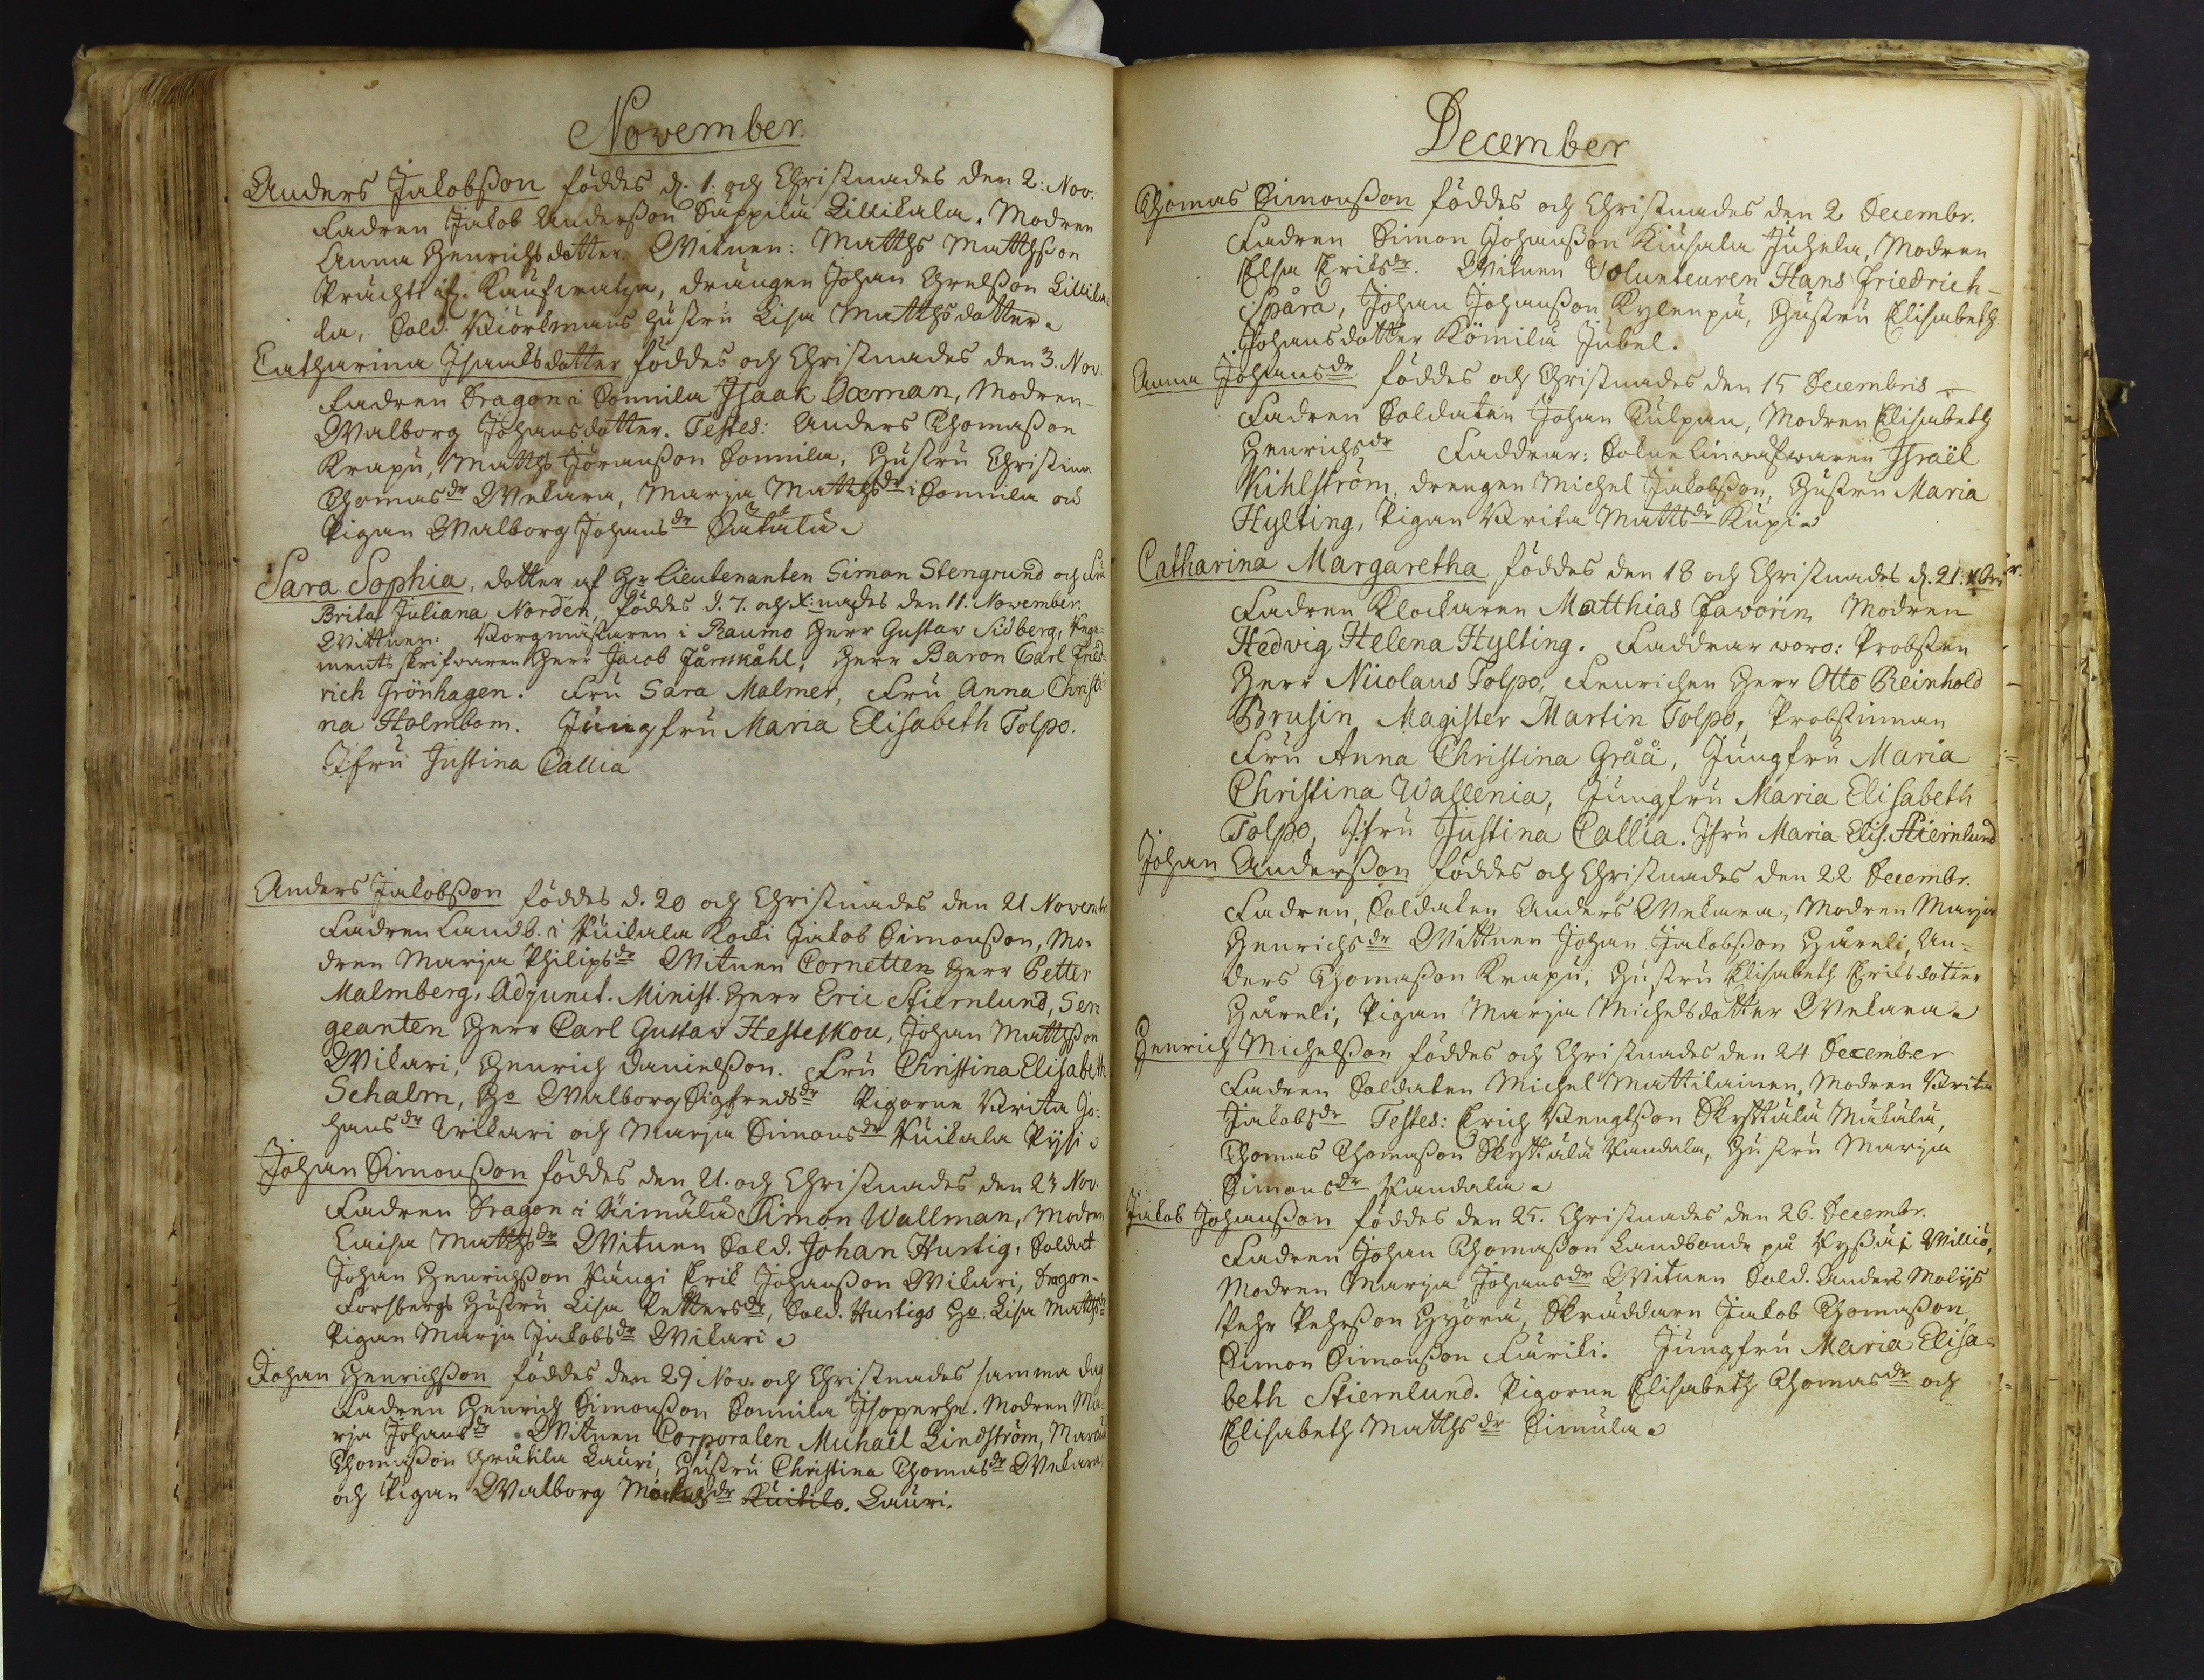 November.
Anders Jakobsson föddes d. 1. och Christnades den 2: Nov.
Fadren Jakob Andersson Säppilä Lillikala. Modren
Anna Henrichsdotter. Witnen: Matths Matthsson
Kaufwatza, drängen Johan Grelsson Lillika-
la, Sold. Biörkmans hustru Lisa Matthsdotter.
Catharina Isaaksdotter föddes och Christnades den 3. Nov.
Fadren Dragon i Sonnila Isaak Oxman, Modren
Walborg Johansdotter. Testes: Anders Thomasson
Krapu, Matths Jöransson Sonnila, Hustru Christina
Thomasdr Wekara, Marja Matthsdr i Sonnila och
Pigan Walborg Johansdr Säkälä.
Sara Sophia, dotter af Hr Lieutenanten Simon Stengrund och Fru
Brita Juliana Nordén, föddes d. 7. och X:nades den 11. November.
Wittnen: Borgmästaren i Raumo Herr Gustav Sidberg, Rege-
mentsskrifwaren Herr Jacob Jårskåhl, Herr Baron Carl Fried-
rich Grönhagen. Fru Sara Malmer, Fru Anna Christi
na Holmbom. Jungfru Maria Elisabeth Polpo.
Jfru Justina Callia
Anders Jakobsson föddes d. 20 och Christnades den 21 Novembr.
Fadren Landb. i Kuikala Kocki Jakob Simonsson, Mo-
dren Marja Philipsdr Witnen Cornetten Herr Petter
Malmberg, Adjunct. Minist. Herr Eric Stiernlund, Ser
geanten Herr Carl Gustav Hesteskou, Johan Mattsson
Wikari, Henrich Danielsson. Fru Christina Elisabeth
Schalm, Ho Walborg Sigfredsdr Pigorne Brita Jo-
hansdr Wikari och Marja Simonsdr Kuikala Pyssi.
Johan Simonsson föddes den 21. och Christnades den 23 Nov.
Fadren Dragon i Simon Wallman, Modren
Caisa Matthsdr Witnen Sold. Johan Hurtig, Soldat
Johan Henrichsson Kangi Erik Johansson Wikari, Dragon-
Forsbergs Hustru Lisa Pettersdr, Sold. Hurtigs Ho. Lisa Matthsdr
Pigan Marja Jakobsdr Wikari.
Johan Henrichsson föddes den 29 Nov. och Christnades samma dag
Fadren Henrich Simonsson Sonnila Isoperhe. Modren Ma-
rja Johansdr. Witnen Corporalen Michaël Lindström, Marcus
Thomasson Lauri, Hustru Christina Thomasdr Wekara,
och Pigan Walborg Markusdr Lauri.
December
Thomas Simonsson föddes och Christnades den 2 Decembr.
Fadren Simon Johansson Kiusala Juhela, Modren
Elsa Eriksdr. Witnen Volunteuren Hans Friedrich
Spåra, Johan Johansson Kylenpä, Hustru Elisabeth
Johansdotter Kömilä Jubel.
Anna Johansdr föddes och Christnades den 15 Decembris
Fadren Soldaten Johan Tulpan, Modren Elisabeth
Henrichsdr Faddrar: Israël
Kihlström, drengen Michel Jakobsson, Hustru Maria
Hylting, Pigan Brita Mattsdr Kupi.
Catharina Margaretha föddes den 18 och Christnades d. 21. Xbr.
Fadren Klockaren Matthias Favorin Modren
Hedvig Helena Hylting. Faddrar woro: Probsten
Herr Nicolaus Polpo, Fenrichen Herr Otto Reinhold
Brusin, Magister Martin Polpo, Probstinnan
Fru Anna Christina Gråå, Jungfru Maria
Christina Wallenia, Jungfru Maria Elisabeth
Polpo, Jfru Justina Callia. Jfru Maria Elis. Stiernlund
Johan Andersson föddes och Christnades den 22 Decembr.
Fadren, Soldaten Anders Wekara, Modren Marja
Henrichsdr Wittnen Johan Jakobsson Håreli, An-
ders Thomasson Krapu, Hustru Elisabeth Eriksdotter
Håreli, Pigan Marja Michelsdotter Wekara.
Henrich Michelsson föddes och Christnades den 24 December
Fadren Soldaten Michel Mattilainen, Modren Brita
Jakobsdr Testes: Erich Bengtsson Skyttälä Mäkälä,
Thomas Thomasson Skyttälä Kandela, Hustru Marja
Simonsdr Kandela.
Jakob Johansson föddes den 25. Christnades den 26. Decembr.
Fadren Johan Thomasson Landbonde på i Williö,
Modren Marja Johansdr Witnen Sold. Anders Molijs
Pehr Pehrsson Hyörä, Skräddarn Jakob Thomasson,
Simon Simonsson Färiki. Jungfru Maria Elisa-
beth Stiernlund. Pigorne Elisabeth Thomasdr och
Elisabeth Matthsdr Simula.